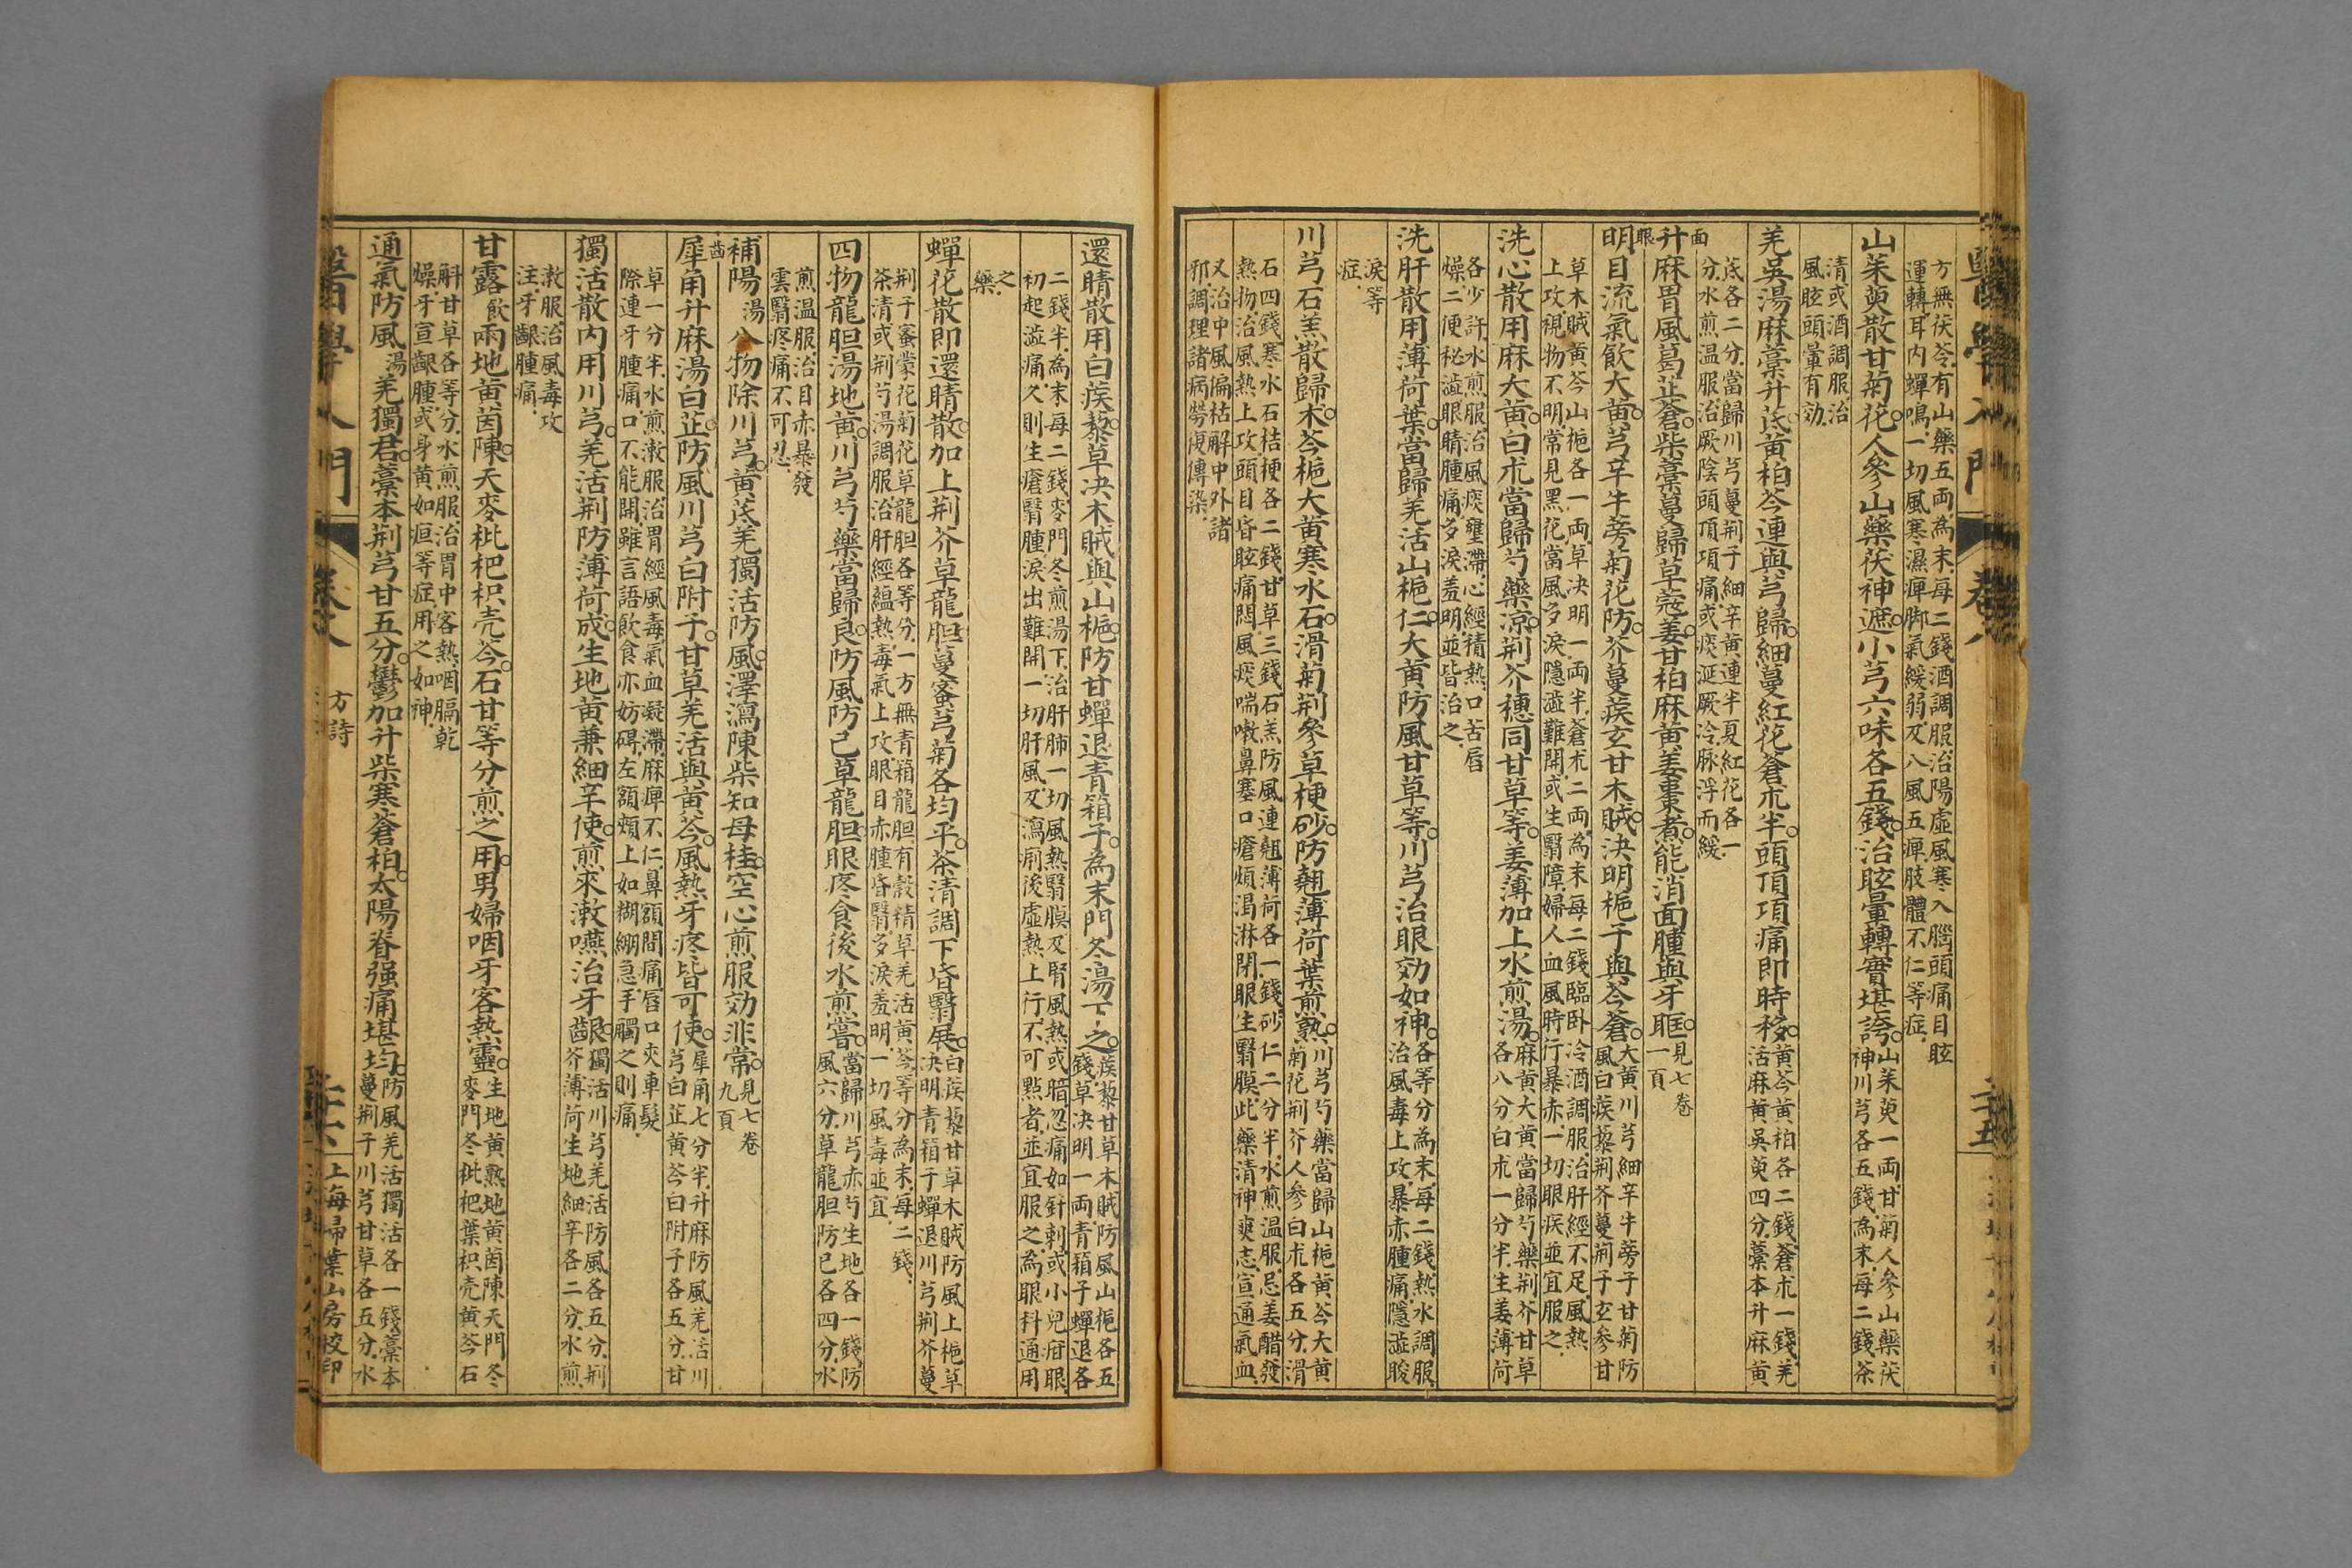 醫學入門
卷八
二十五
方無茯苓有山藥五兩為末每二錢酒調服治陽虛風寒入腦頭痛目眩
運轉耳內蟬鳴一切風寒濕痺脚氣緩弱及八風五痺肢體不仁等症
山茱萸散甘菊花人參山藥茯神遮小芎六味各五錢治眩暈轉實堪誇
山茱萸一兩甘菊人參山藥茯
神川芎各五錢為末每二錢茶
清或酒調服治
風眩頭暈有効
羌吳湯麻藁升芪黃柏芩連與芎歸細蔓紅花蒼朮半頭頂項痛即時移
黃芩黃柏各二錢蒼朮一錢羌
活麻黃吳萸四分藁本升麻黃
芪各二分當歸川芎蔓荆子細辛黃連半夏紅花各一
分水煎溫服治厥陰頭頂項痛或痰涎厥冷脉浮而緩
面
升麻胃風葛芷蒼柴藁蔓歸草蔻姜甘柏麻黃姜棗煮能消面腫與牙眶
見七卷
一頁
眼
明目流氣飲大黃芎辛牛蒡菊花防芥蔓蒺玄甘木賊決明梔子與芩蒼
大黃川芎細辛牛蒡子甘菊防
風白蒺藜荆芥蔓荆子玄參甘
草木賊黃芩山梔各一兩草决明一兩半蒼朮二兩為末每二錢臨卧冷酒調服治肝經不足風熱
上攻視物不明常見黑花當風多淚隱澁難開或生翳障婦人血風時行暴赤一切眼疾並宜服之
洗心散用麻大黃白朮當歸芍藥凉荆芥穗同甘草等姜薄加上水煎湯
麻黃大黃當歸芍藥荆芥甘草
各八分白朮一分半生姜薄荷
各少許水煎服治風痰壅滯心經積熱口苦唇
燥二便秘澁眼睛腫痛多淚羞明並皆治之
洗肝散用薄荷葉當歸羌活山梔仁大黃防風甘草等川芎治眼効如神
各等分為末每二錢熱水調服
治風毒上攻暴赤腫痛隱澁眵
淚等
症
川芎石羔散歸朮芩梔大黃寒水石滑菊荆參草梗砂防翹薄荷葉煎熟
川芎芍藥當歸山梔黃芩大黃
菊花荆芥人參白朮各五分滑
石四錢寒水石桔梗各二錢甘草三錢石羔防風連翹薄荷各一錢砂仁二分半水煎溫服忌姜醋發
熱物治風熱上攻頭目昏眩痛悶風痰喘嗽鼻塞口瘡煩渴淋閉眼生翳膜此藥清神爽志宣通氣血
又治中風偏枯解中外諸
邪調理諸病勞復傳染
還睛散用白蒺藜草决木賊與山梔防甘蟬退青箱子為末門冬湯下之
蒺藜甘草木賊防風山梔各五
錢草决明一兩青箱子蟬退各
二錢半為末每二錢麥門冬煎湯下治肝肺一切風熱翳膜及腎風熱或暗忽痛如針刺或小兒疳眼
初起澁痛久則生瘡翳腫淚出難開一切肝風及瀉痢後虛熱上行不可點者並宜服之為眼科通用
之
藥
蟬花散即還睛散加上荆芥草龍胆蔓蜜芎菊各均平茶清調下昏翳展
白蒺藜甘草木賊防風上梔草
决明青箱子蟬退川芎荆芥蔓
荆子蜜蒙花菊花草龍胆各等分一方無青箱龍胆有穀精草羌活黃芩等分為末每二錢
茶清或荆芍湯調服治肝經蘊熱毒氣上攻眼目赤腫昏翳多淚羞明一切風毒並宜
四物龍胆湯地黃川芎芍藥當歸良防風防己草龍胆眼疼食後水煎嘗
當歸川芎赤芍生地各一錢防
風六分草龍胆防己各四分水
煎溫服治目赤暴發
雲翳疼痛不可忍
補陽湯八物除川芎黃芪羌獨活防風澤瀉陳柴知母桂空心煎服効非常
見七卷
九頁
齒
犀角升麻湯白芷防風川芎白附子甘草羌活與黃芩風熱牙疼皆可使
犀角七分半升麻防風羌活川
芎白芷黃芩白附子各五分甘
草一分半水煎漱服治胃經風毒氣血凝滯麻痺不仁鼻額間痛唇口夾車髮
際連牙腫痛口不能開雖言語飲食亦妨碍左額頰上如糊綳急手觸之則痛
獨活散內用川芎羌活荆防薄荷成生地黃兼細辛使煎來漱嚥治牙齦
獨活川芎羌活防風各五分荆
芥薄荷生地細辛各二分水煎
漱服治風毒攻
注牙齦腫痛
甘露飲兩地黃茵陳天麥枇杷枳壳芩石甘等分煎之用男婦咽牙客熱靈
生地黃熟地黃茵陳天門冬
麥門冬枇杷葉枳壳黃芩石
斛甘草各等分水煎服治胃中客熱咽膈乾
燥牙宣齦腫或身黃如疸等症用之如神
通氣防風湯羌獨君藁本荆芎甘五分鬱加升柴寒蒼柏太陽脊强痛堪均
防風羌活獨活各一錢藁本
蔓荆子川芎甘草各五分水
醫學入門
方詩
上海掃葉山房校印